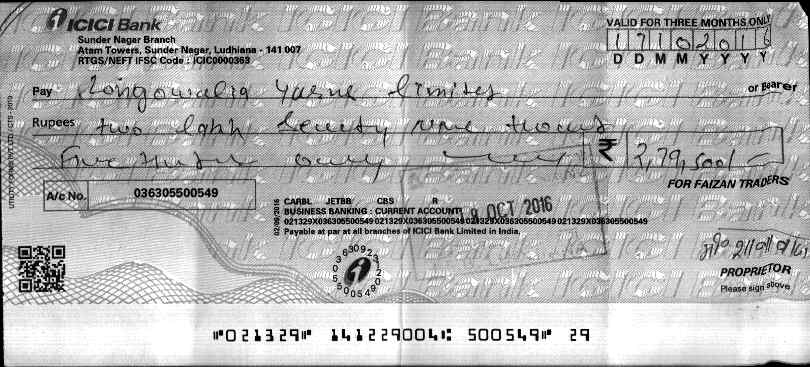 ICICI Bank
Sunder Nagar Branch
Atam Towers, Sunder Nagar, Ludhiana - 141 007
RTGS/NEFT IFSC Code : ICIC0000363
VALID FOR THREE MONTHS ONLY
17102016
D D M M Y Y Y Y
Pay Longowalia Yarns Limited or Bearer
Rupees two lakh seventy nine
Five only ₹ 2,79,500/-
FOR FAIZAN TRADERS
A/c No. 036305500549
CARBL JETBB CBS R
BUSINESS BANKING : CURRENT ACCOUNT
18 OCT 2016
021329X036305500549 021329X036305500549 021329X036305500549 021329X036305500549
Payable at par at all branches of ICICI Bank Limited in India.
02/09/2016
PROPRIETOR
Please sign above
⑈021329⑈ 141229004⑆ 500549⑈ 29